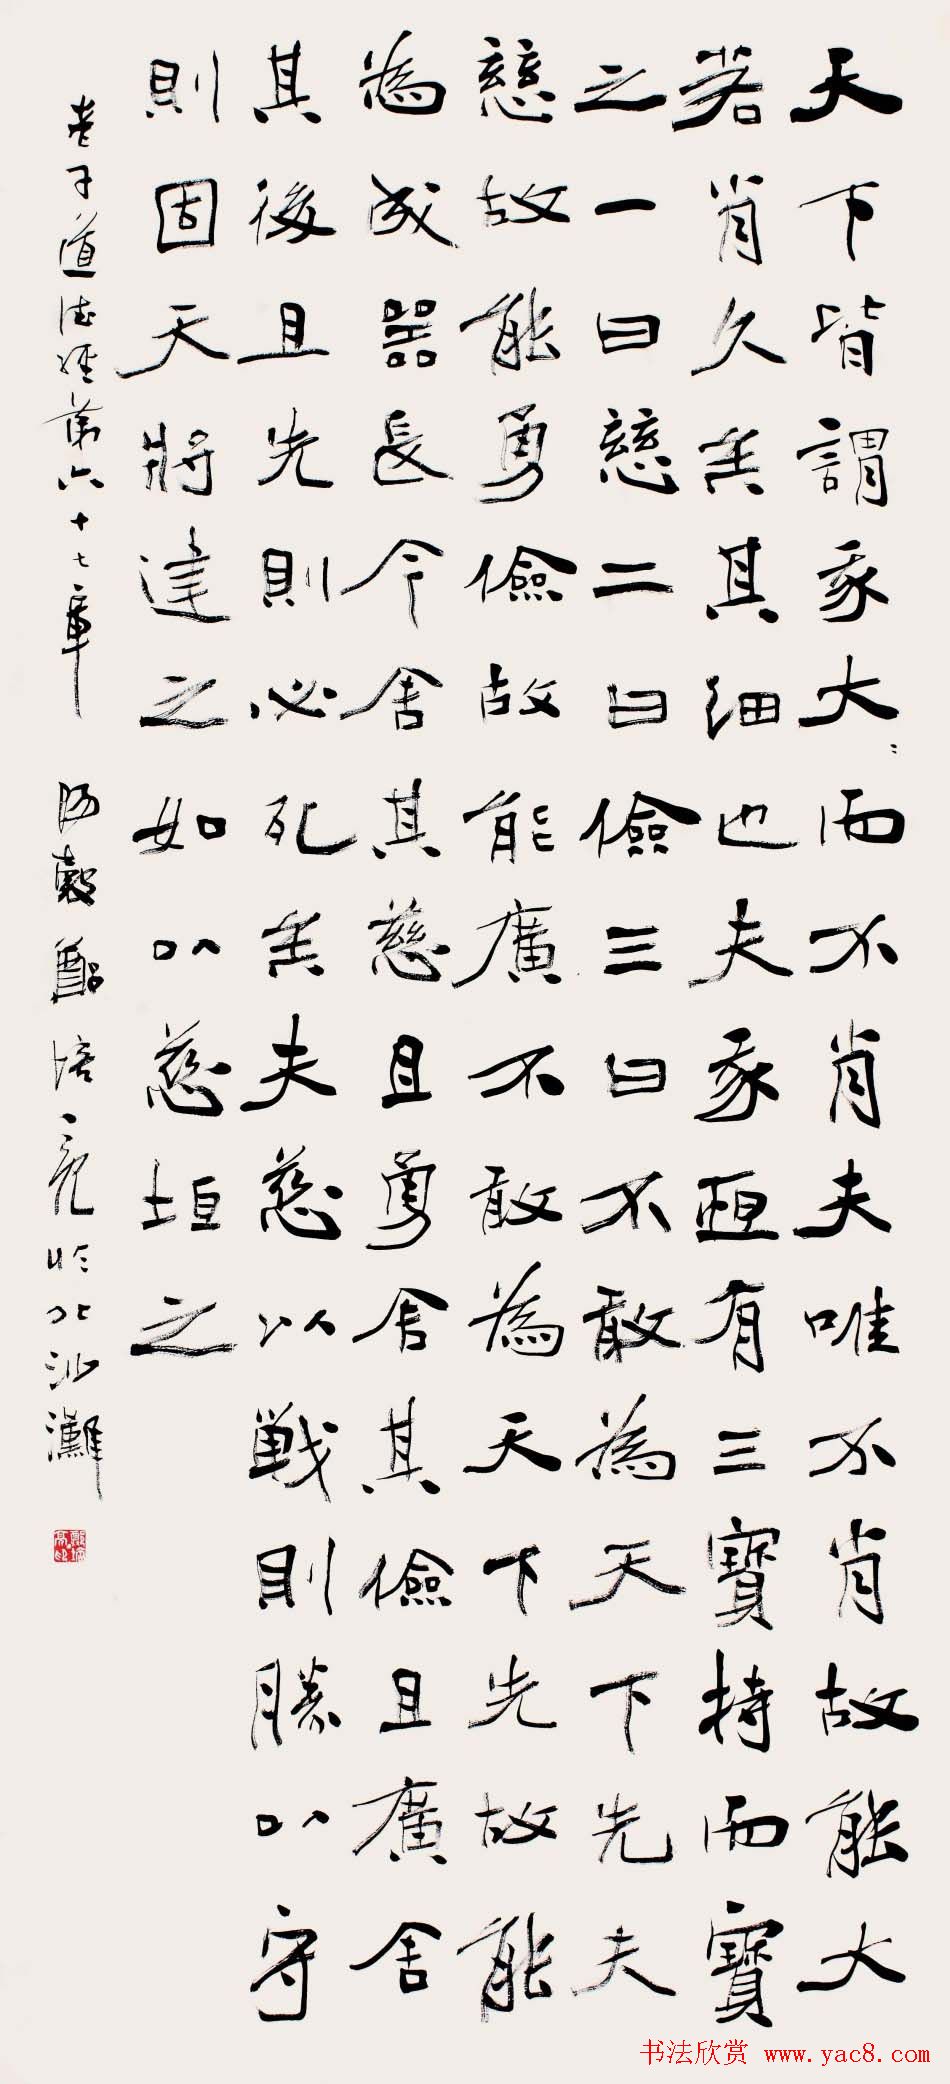 天下皆謂我大〻而不肖夫唯不肖故能大
若肖久矣其細也夫我亙有三寶持而寶
之一曰慈二曰儉三曰不敢為天下先夫
慈故能勇儉故能廣不敢為天下先故能
為成器長今舍其慈且勇舍其儉且廣舍
其後且先則必死矣夫慈以戰則勝以守
則固天將建之如以慈垣之
老子道德經第六十七章 陽穀鄭培亮於北沙灘
书法欣赏 www.yac8.com